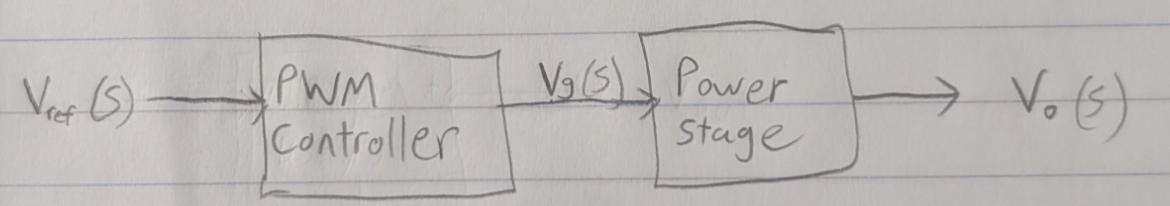 V_ref(s)
PWM
Controller
Vg(s)
Power
stage
V_o(s)